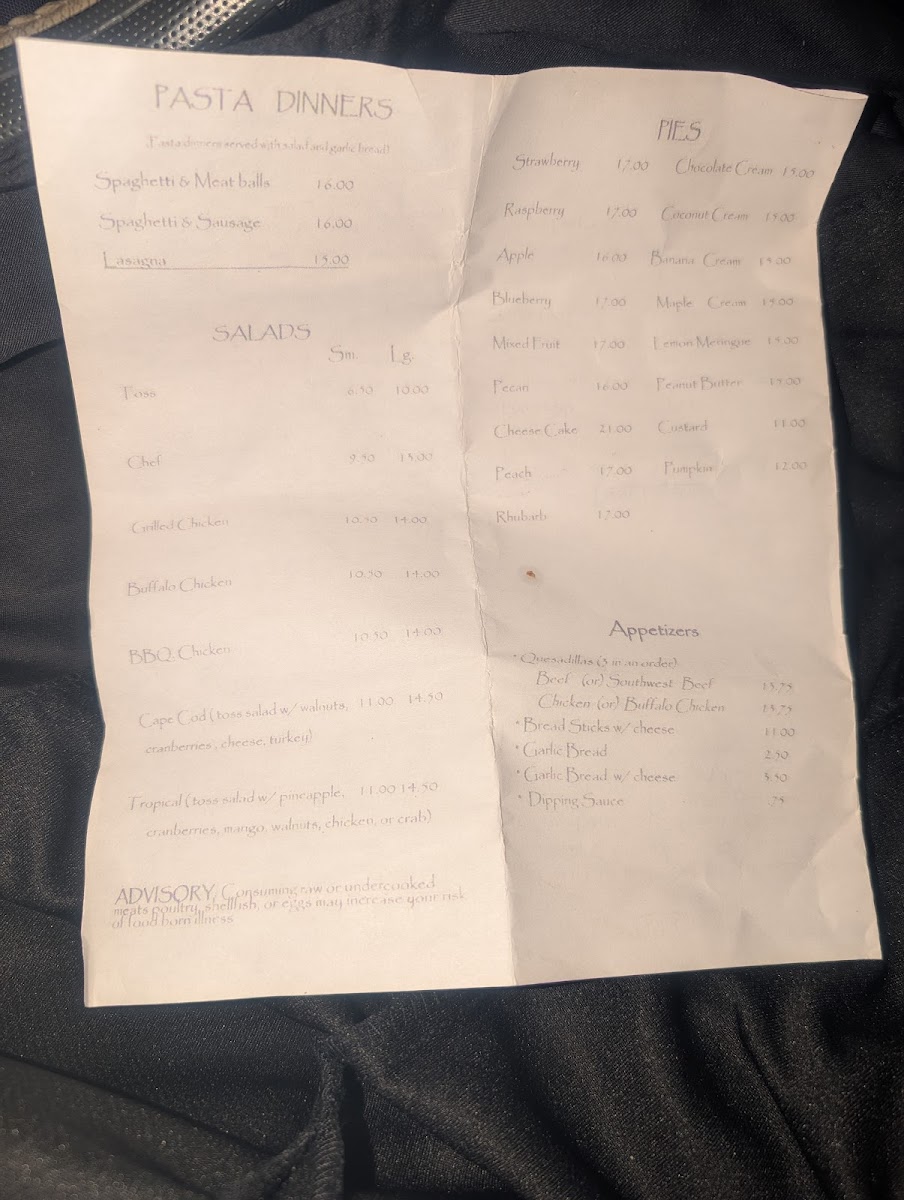 PASTA DINNERS
(Pasta dinners served with salad and garlic bread)
Spaghetti & Meat balls 16.00
Spaghetti & Sausage 16.00
Lasagna 15.00
SALADS
Sm. Lg.
Toss 6.50 10.00
Chef 9.50 15.00
Grilled Chicken 10.50 14.00
Buffalo Chicken 10.50 14.00
BBQ Chicken 10.50 14.00
Cape Cod (toss salad w/ walnuts, 11.00 14.50
cranberries, cheese, turkey)
Tropical (toss salad w/ pineapple, 11.00 14.50
cranberries, mango, walnuts, chicken, or crab)
ADVISORY, Consuming raw or undercooked
meats poultry, shellfish, or eggs may increase your risk
of food born illness
PIES
Strawberry 17.00 Chocolate Cream 15.00
Raspberry 17.00 Coconut Cream 15.00
Apple 16.00 Banana Cream 15.00
Blueberry 17.00 Maple Cream 15.00
Mixed Fruit 17.00 Lemon Meringue 15.00
Pecan 16.00 Peanut Butter 15.00
Cheese Cake 21.00 Custard 11.00
Peach 17.00 Pumpkin 12.00
Rhubarb 17.00
Appetizers
* Quesadillas (3 in an order)
Beef (or) Southwest Beef 15.75
Chicken (or) Buffalo Chicken 15.75
* Bread Sticks w/ cheese 11.00
* Garlic Bread 2.50
* Garlic Bread w/ cheese 5.50
* Dipping Sauce .75